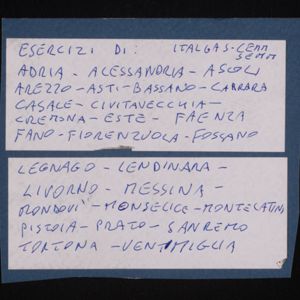 ESERCIZI DI: ITALGAS-
ADRIA - ALESSANDRIA - ASCOLI
AREZZO - ASTI - BASSANO - CARRARA
CASALE - CIVITAVECCHIA -
CREMONA - ESTE - FAENZA
FANO - FIORENZUOLA - FOSSANO
LEGNAGO - LENDINARA -
LIVORNO - MESSINA -
MONDOVI' - MONSELICE - MONTECATINI
PISTOIA - PRATO - SANREMO
TORTONA - VENTIMIGLIA